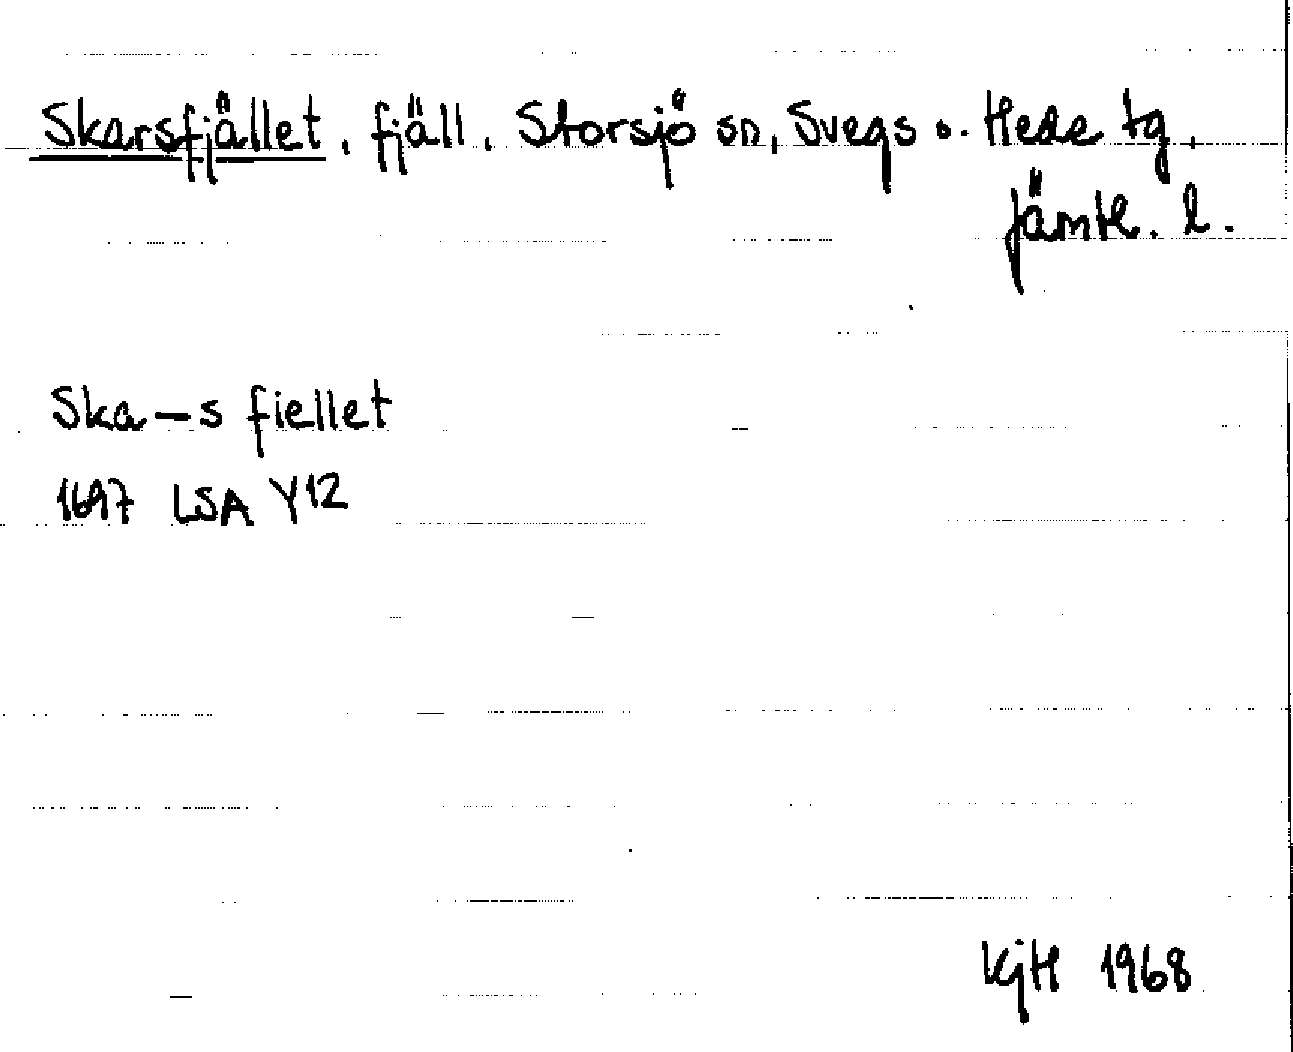 Skarsfjället, fjäll, Storsjö sn, Svegs o. Hede tg,
Jämtl. l.
Ska–s fiellet
1697 LSA Y12
KjH 1968